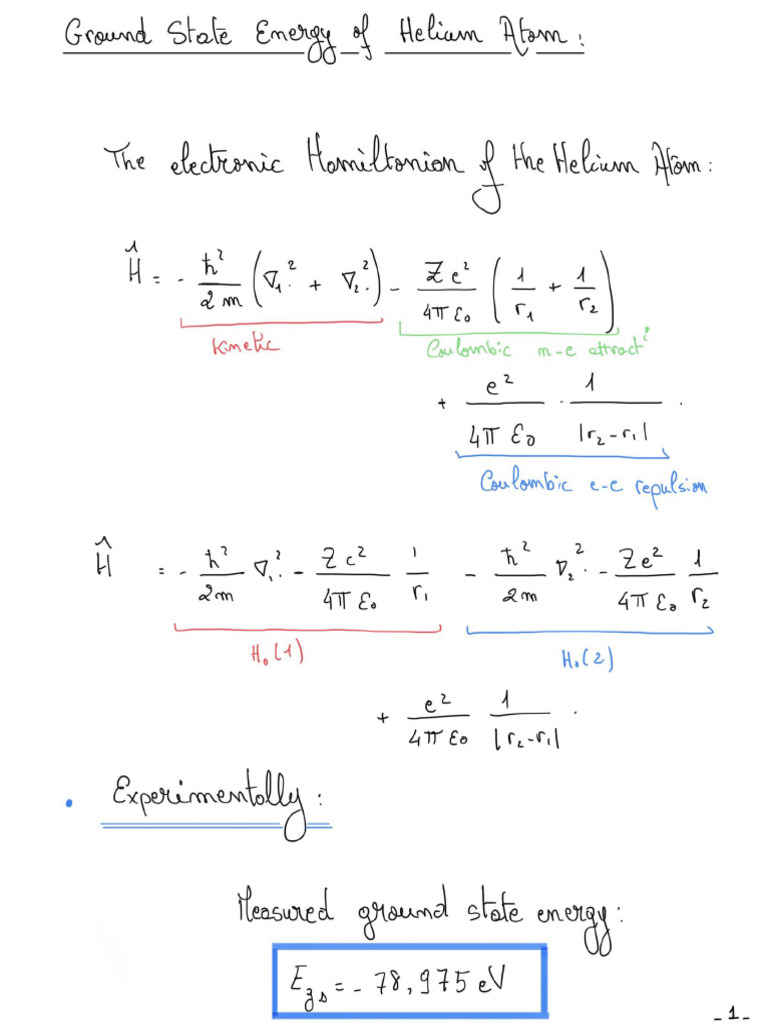 Ground State Energy of Helium Atom:
The electronic Hamiltonian of the Helium Atom:
Ĥ = - ħ²/2m (∇₁² + ∇₂²) - Ze²/4πε₀ (1/r₁ + 1/r₂)
Kinetic Coulombic n-e attractⁱ
+ e²/4πε₀ · 1/|r₂-r₁| .
Coulombic e-e repulsion
Ĥ = - ħ²/2m ∇₁² - Ze²/4πε₀ 1/r₁ - ħ²/2m ∇₂² - Ze²/4πε₀ 1/r₂
H₀(1) H₀(2)
+ e²/4πε₀ 1/|r₂-r₁| .
• Experimentally:
Measured ground state energy:
E_gs = - 78,975 eV
-1-